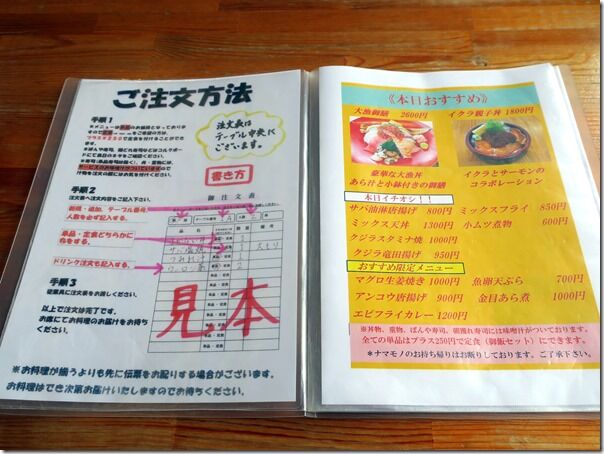 ご注文方法
手順1
注文表は
テーブル中央に
ございます。
書き方
手順2
注文表へ注文内容をご記入下さい。
新規・追加、テーブル番号、
人数を必ず記入する。
単品・定食どちらかに
〇をする。
ドリンク注文も記入する。
手順3
従業員に注文表をお渡しください。
以上で注文は完了です。
お席にてお料理のお届けをお待ち
ください。
御注文表
大もり
見本
※お料理が揃うよりも先に伝票をお配りする場合がございます。
お料理はでき次第お届けいたしますのでお待ちください。
《本日おすすめ》
大漁御膳 2600円 イクラ親子丼 1800円
豪華な大漁丼
あら汁と小鉢付きの御膳
イクラとサーモンの
コラボレーション
本日イチオシ!!
サバ油淋唐揚げ 800円 ミックスフライ 850円
ミックス天丼 1300円 小ムツ煮物 600円
クジラスタミナ焼 1000円
クジラ竜田揚げ 950円
おすすめ限定メニュー
マグロ生姜焼き 1000円 魚卵天ぷら 700円
アンコウ唐揚げ 900円 金目あら煮 1000円
エビフライカレー 1200円
※丼物、煮物、ばんや寿司、朝獲れ寿司には味噌汁がついております。
全ての単品はプラス250円で定食(御飯セット)にできます。
＊ナマモノのお持ち帰りはお断りしております。ご了承下さい。